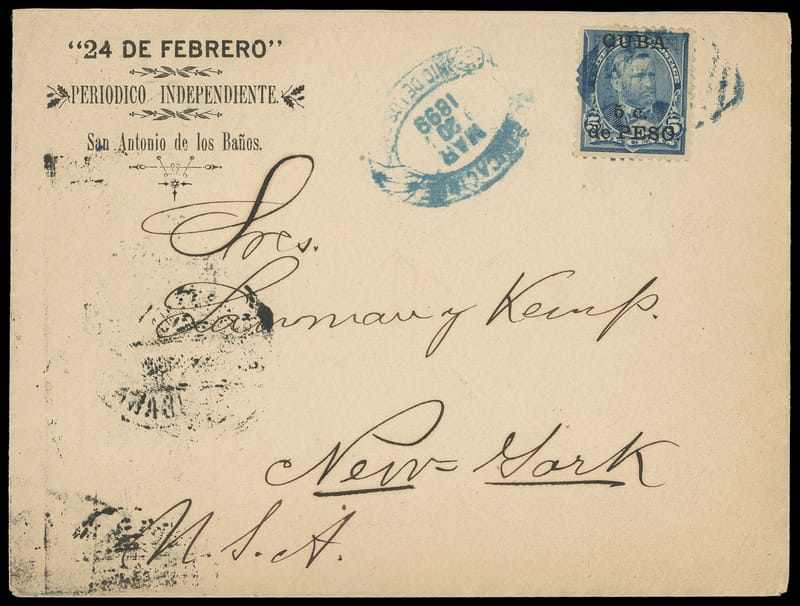 “24 DE FEBRERO”
PERIODICO INDEPENDIENTE.
San Antonio de los Baños.
MAR
20
1899
CUBA
5 c.
de PESO
5 5
Sres.
Lanman y Kemp.
New=York
U.S.A.